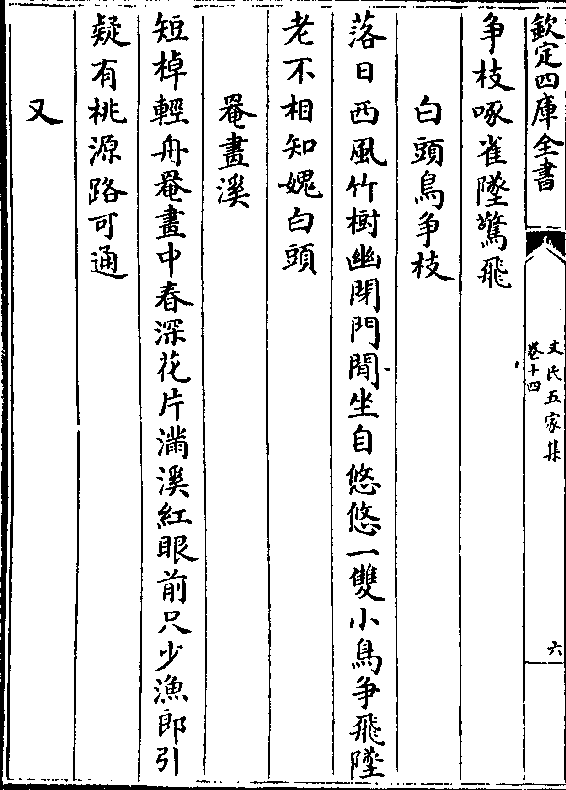 欽定四庫全書
文氏五家集
卷十四
六
争枝啄雀墜驚飛
白頭鳥争枝
落日西風竹樹幽閉門閒坐自悠悠一雙小鳥争飛墜
老不相知媿白頭
罨畫溪
短棹輕舟罨畫中春深花片滿溪紅眼前只少漁郎引
疑有桃源路可通
又